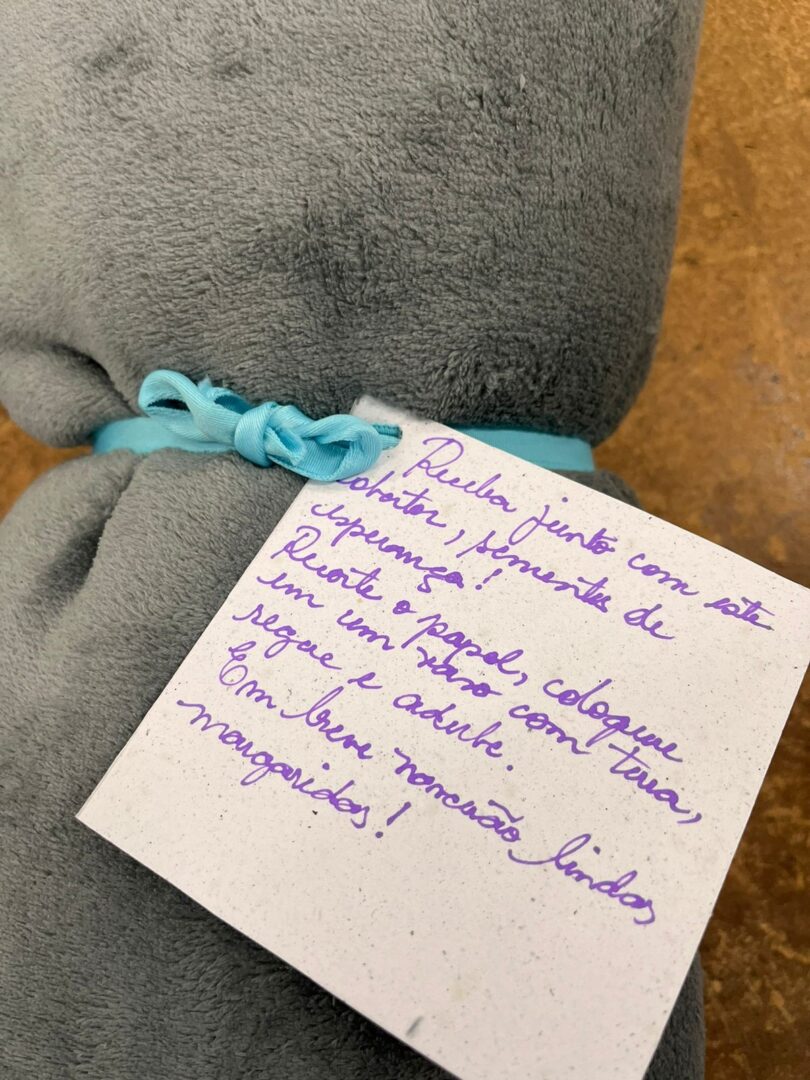 Receba junto com este
cobertor, sementes de
esperança!
Recorte o papel, coloque
em um vaso com terra,
regue e adube.
Em breve nascerão lindas
margaridas!